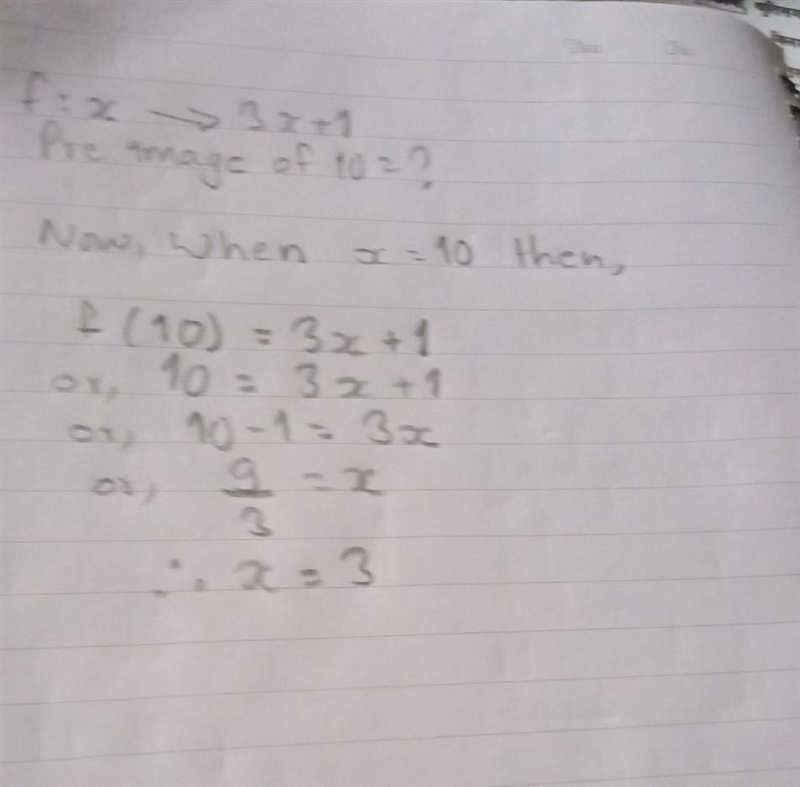 f : x → 3x+1
Pre image of 10 = ?
Now, When x = 10 then,
f (10) = 3x + 1
or, 10 = 3x + 1
or, 10 - 1 = 3x
or, 9/3 = x
∴ x = 3